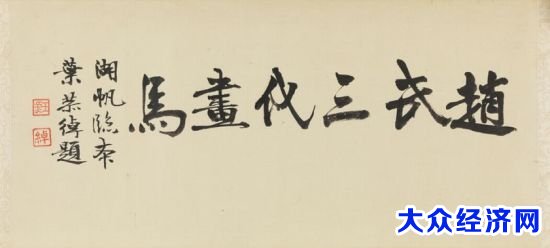 趙氏三代畫馬
湖帆臨本
葉恭綽題
大众经济网